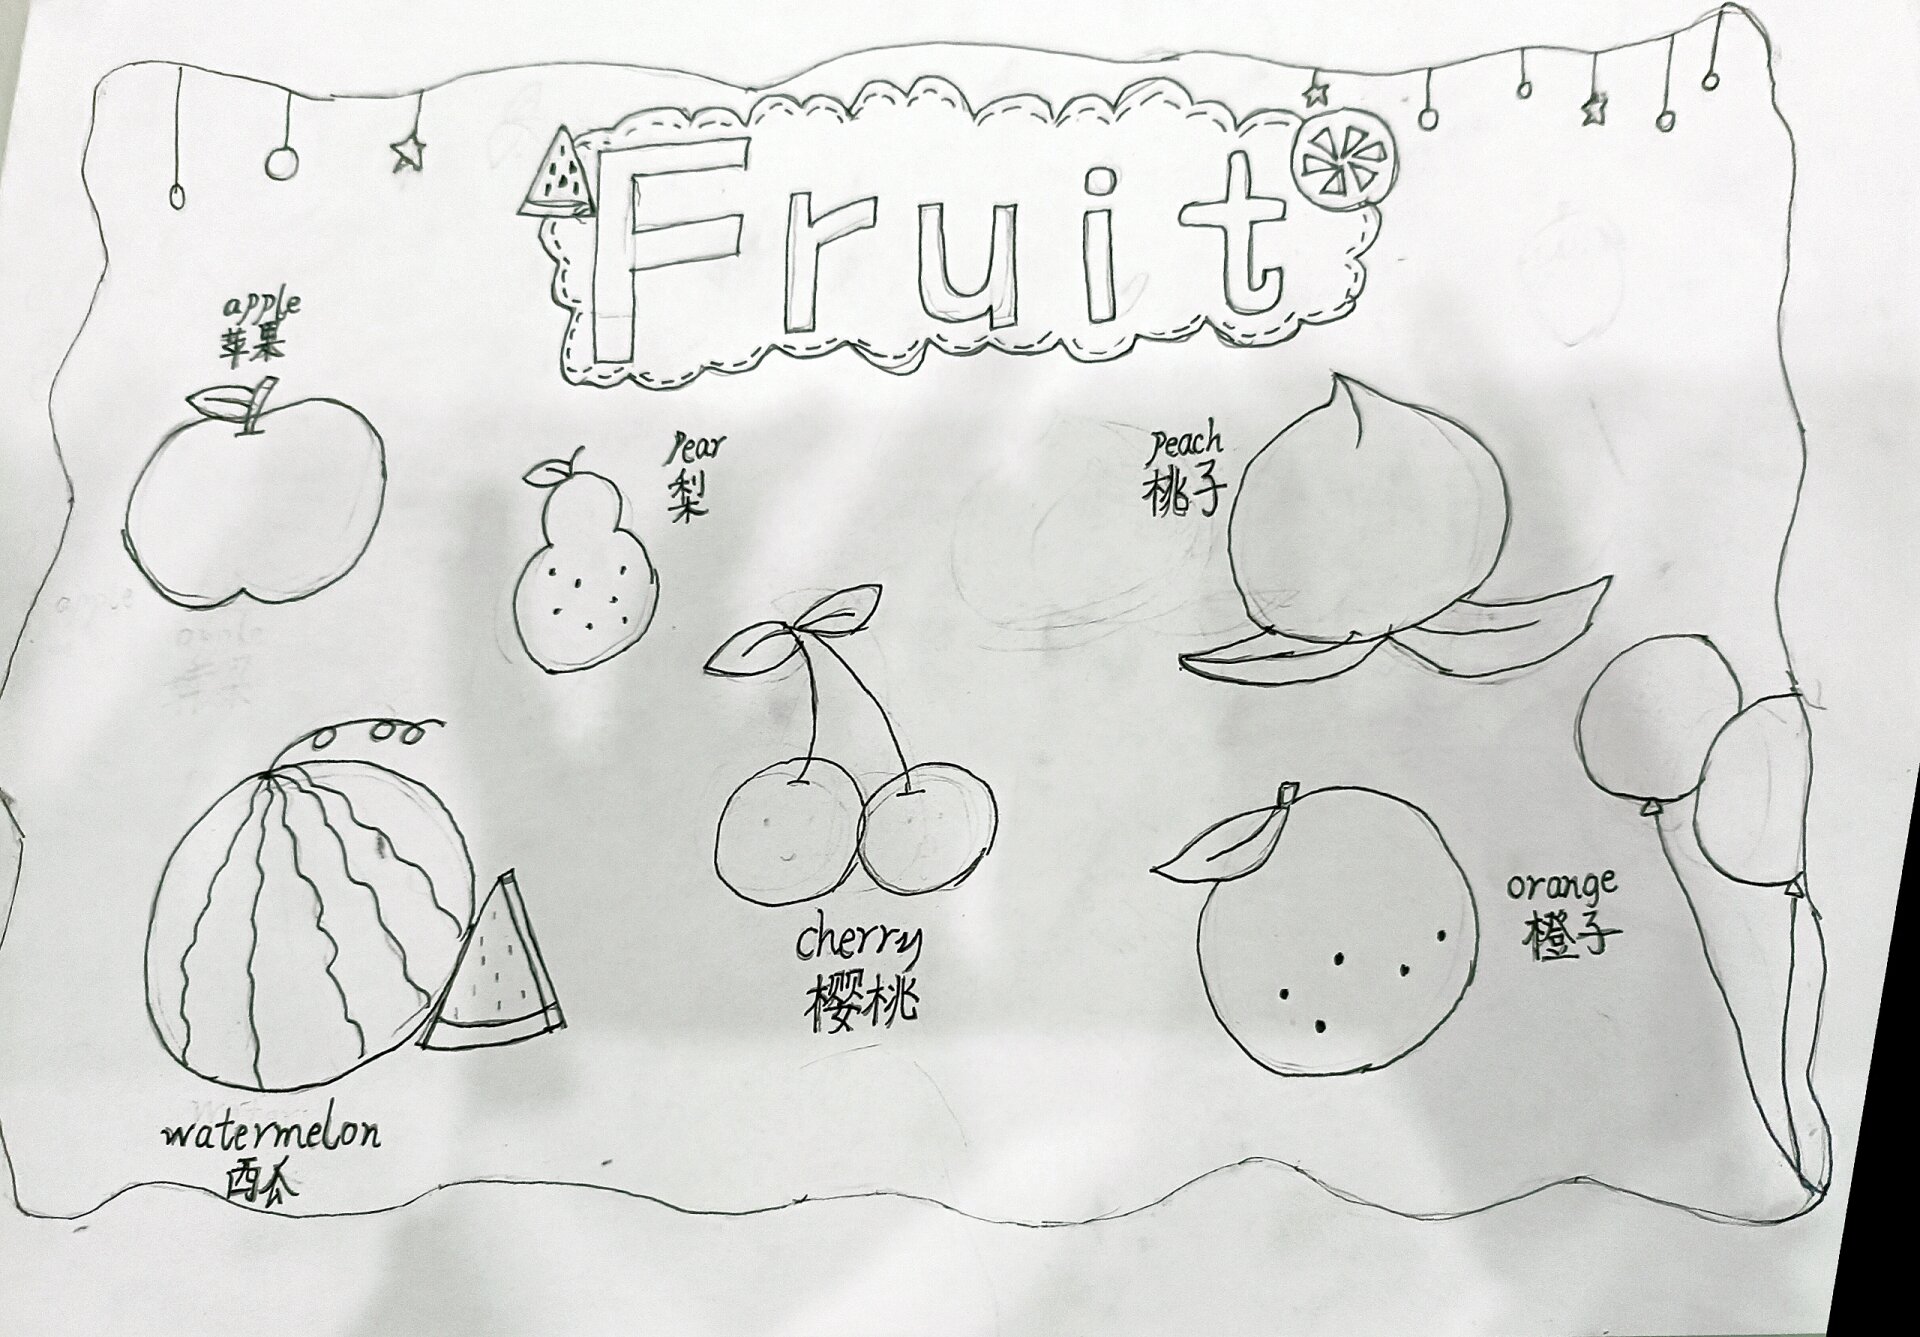 Fruit
apple
苹果
Pear
梨
Peach
桃子
cherry
樱桃
orange
橙子
watermelon
西瓜